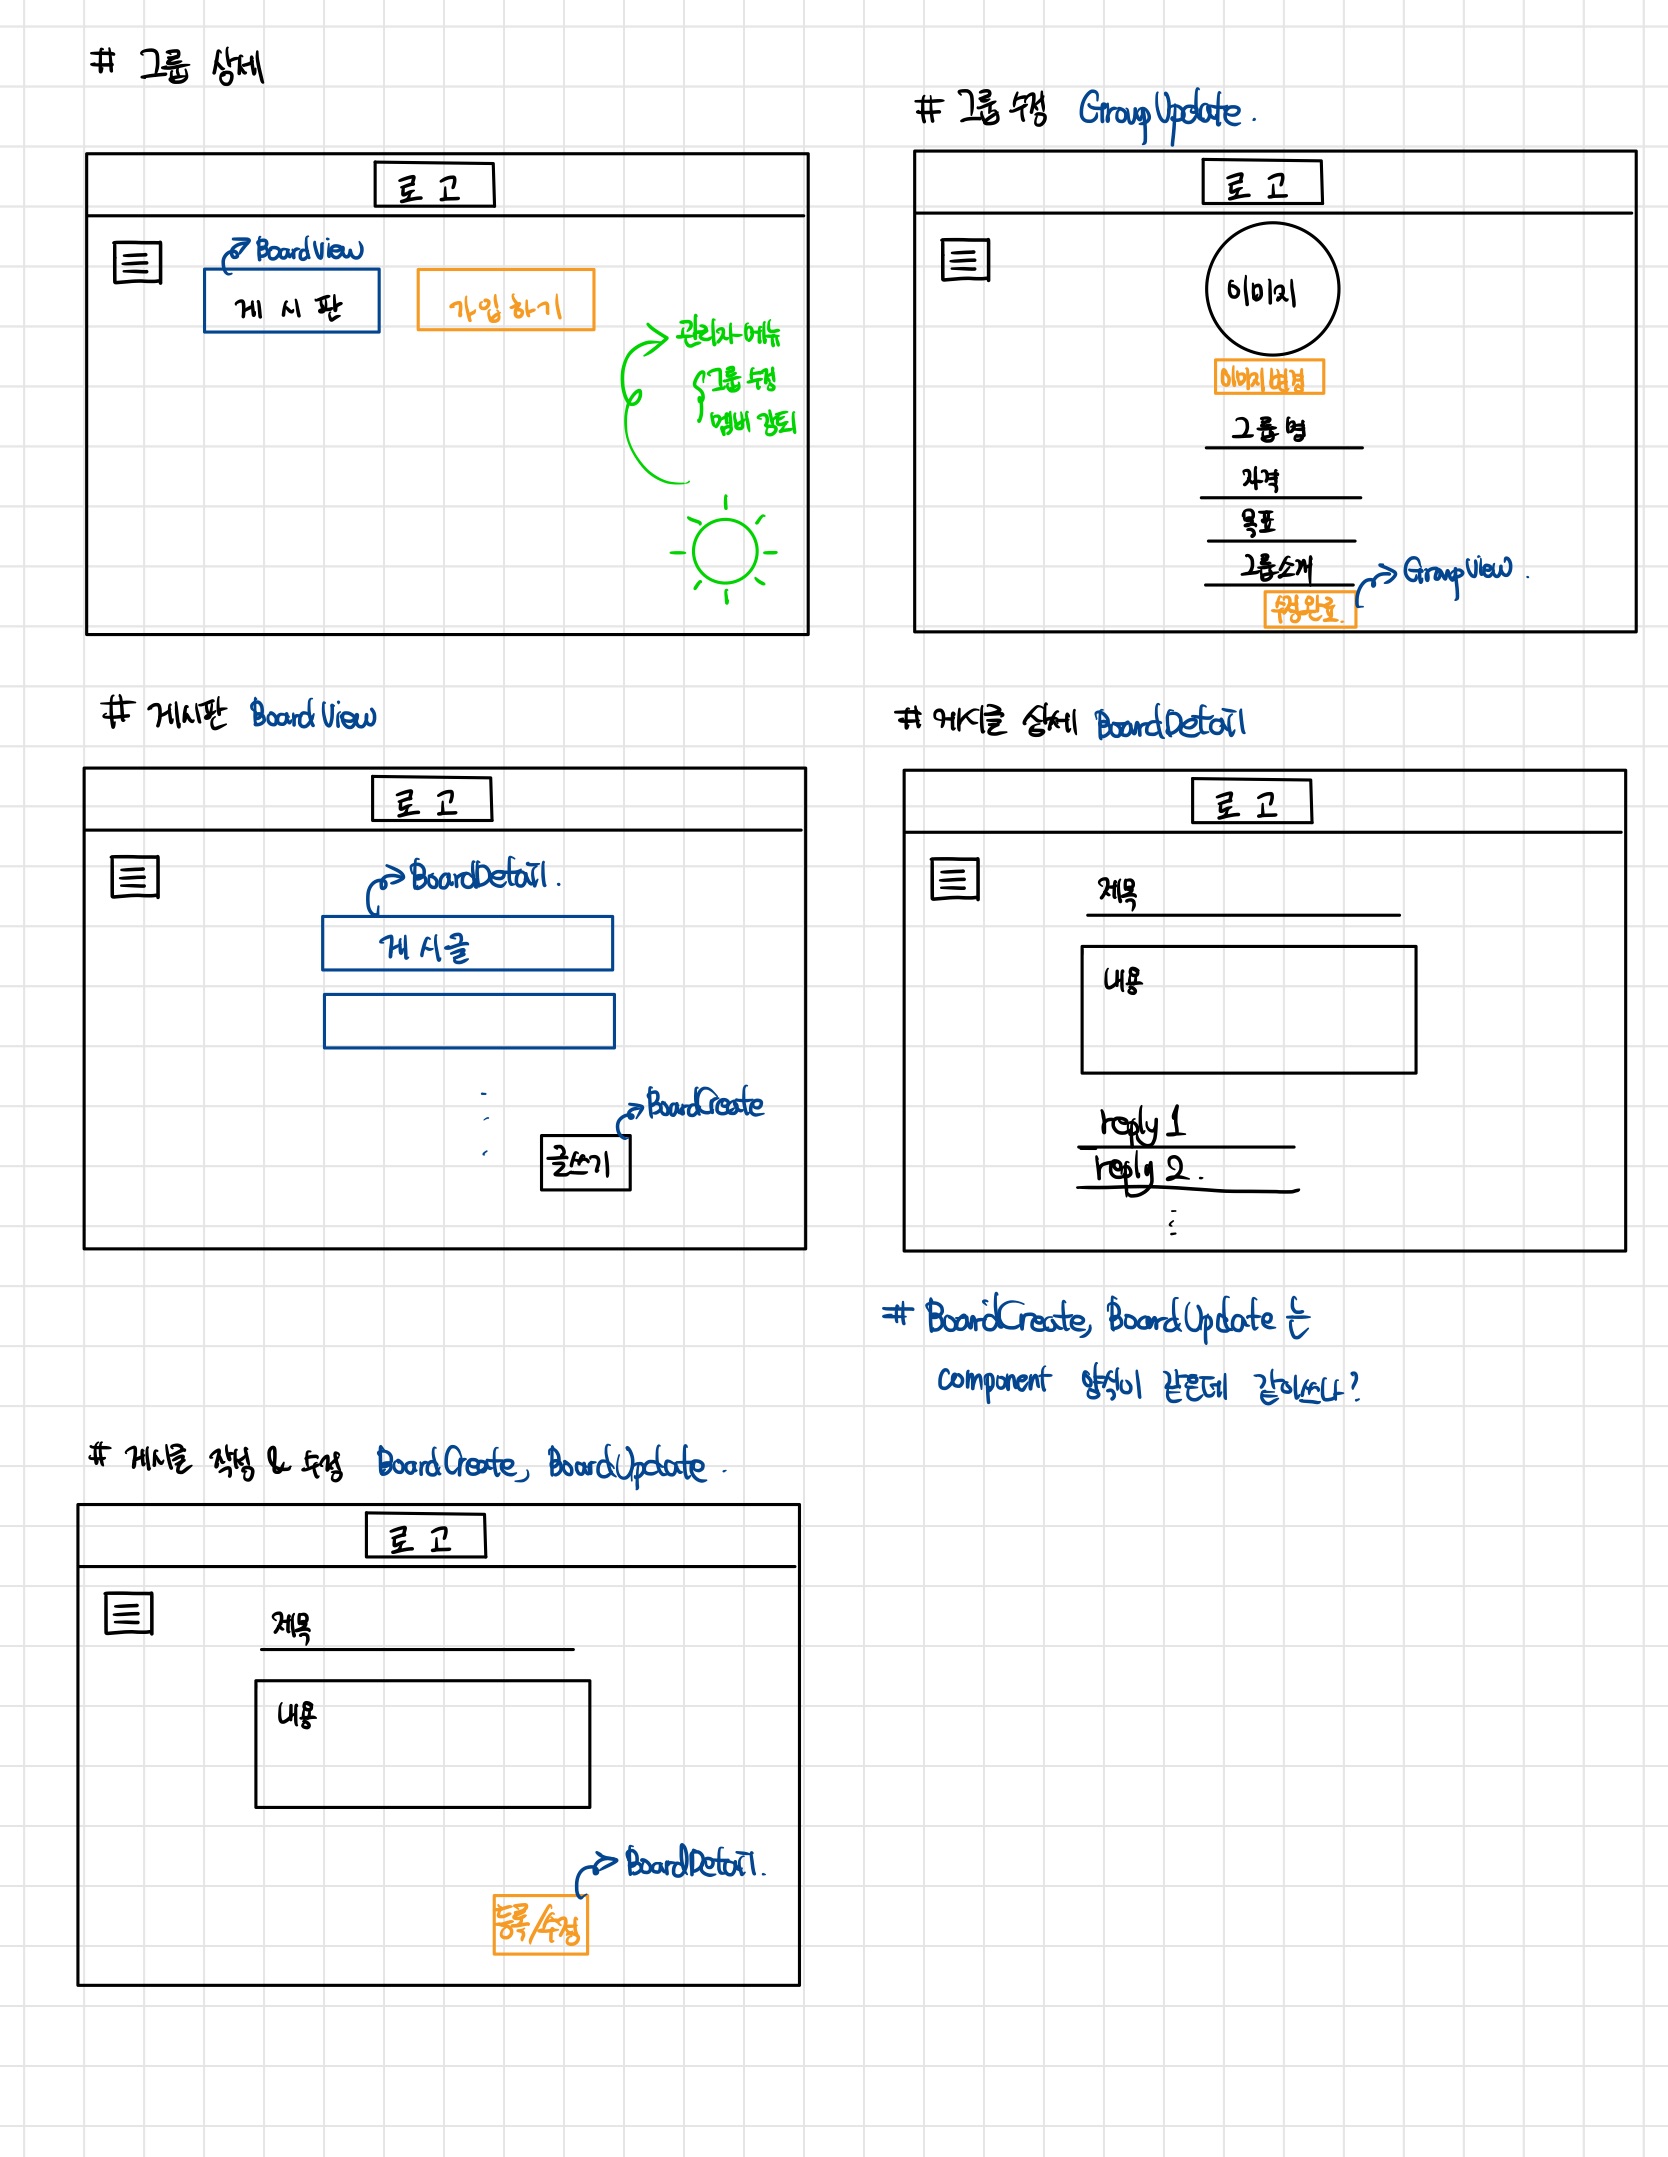 # 그룹 상세
로고
BoardView
게시판
가입하기
관리자메뉴
그룹 수정
멤버 강퇴
# 그룹 수정 GroupUpdate.
로고
이미지
이미지 변경
그룹명
자격
목표
그룹소개
GroupView.
수정완료.
# 게시판 BoardView
로고
BoardDetail.
게시글
BoardCreate
글쓰기
# 게시글 상세 BoardDetail
로고
제목
내용
reply 1
reply 2.
# BoardCreate, BoardUpdate 는
component 양식이 같은데 같이쓰나?
# 게시글 작성 & 수정 BoardCreate, BoardUpdate.
로고
제목
내용
BoardDetail.
등록/수정